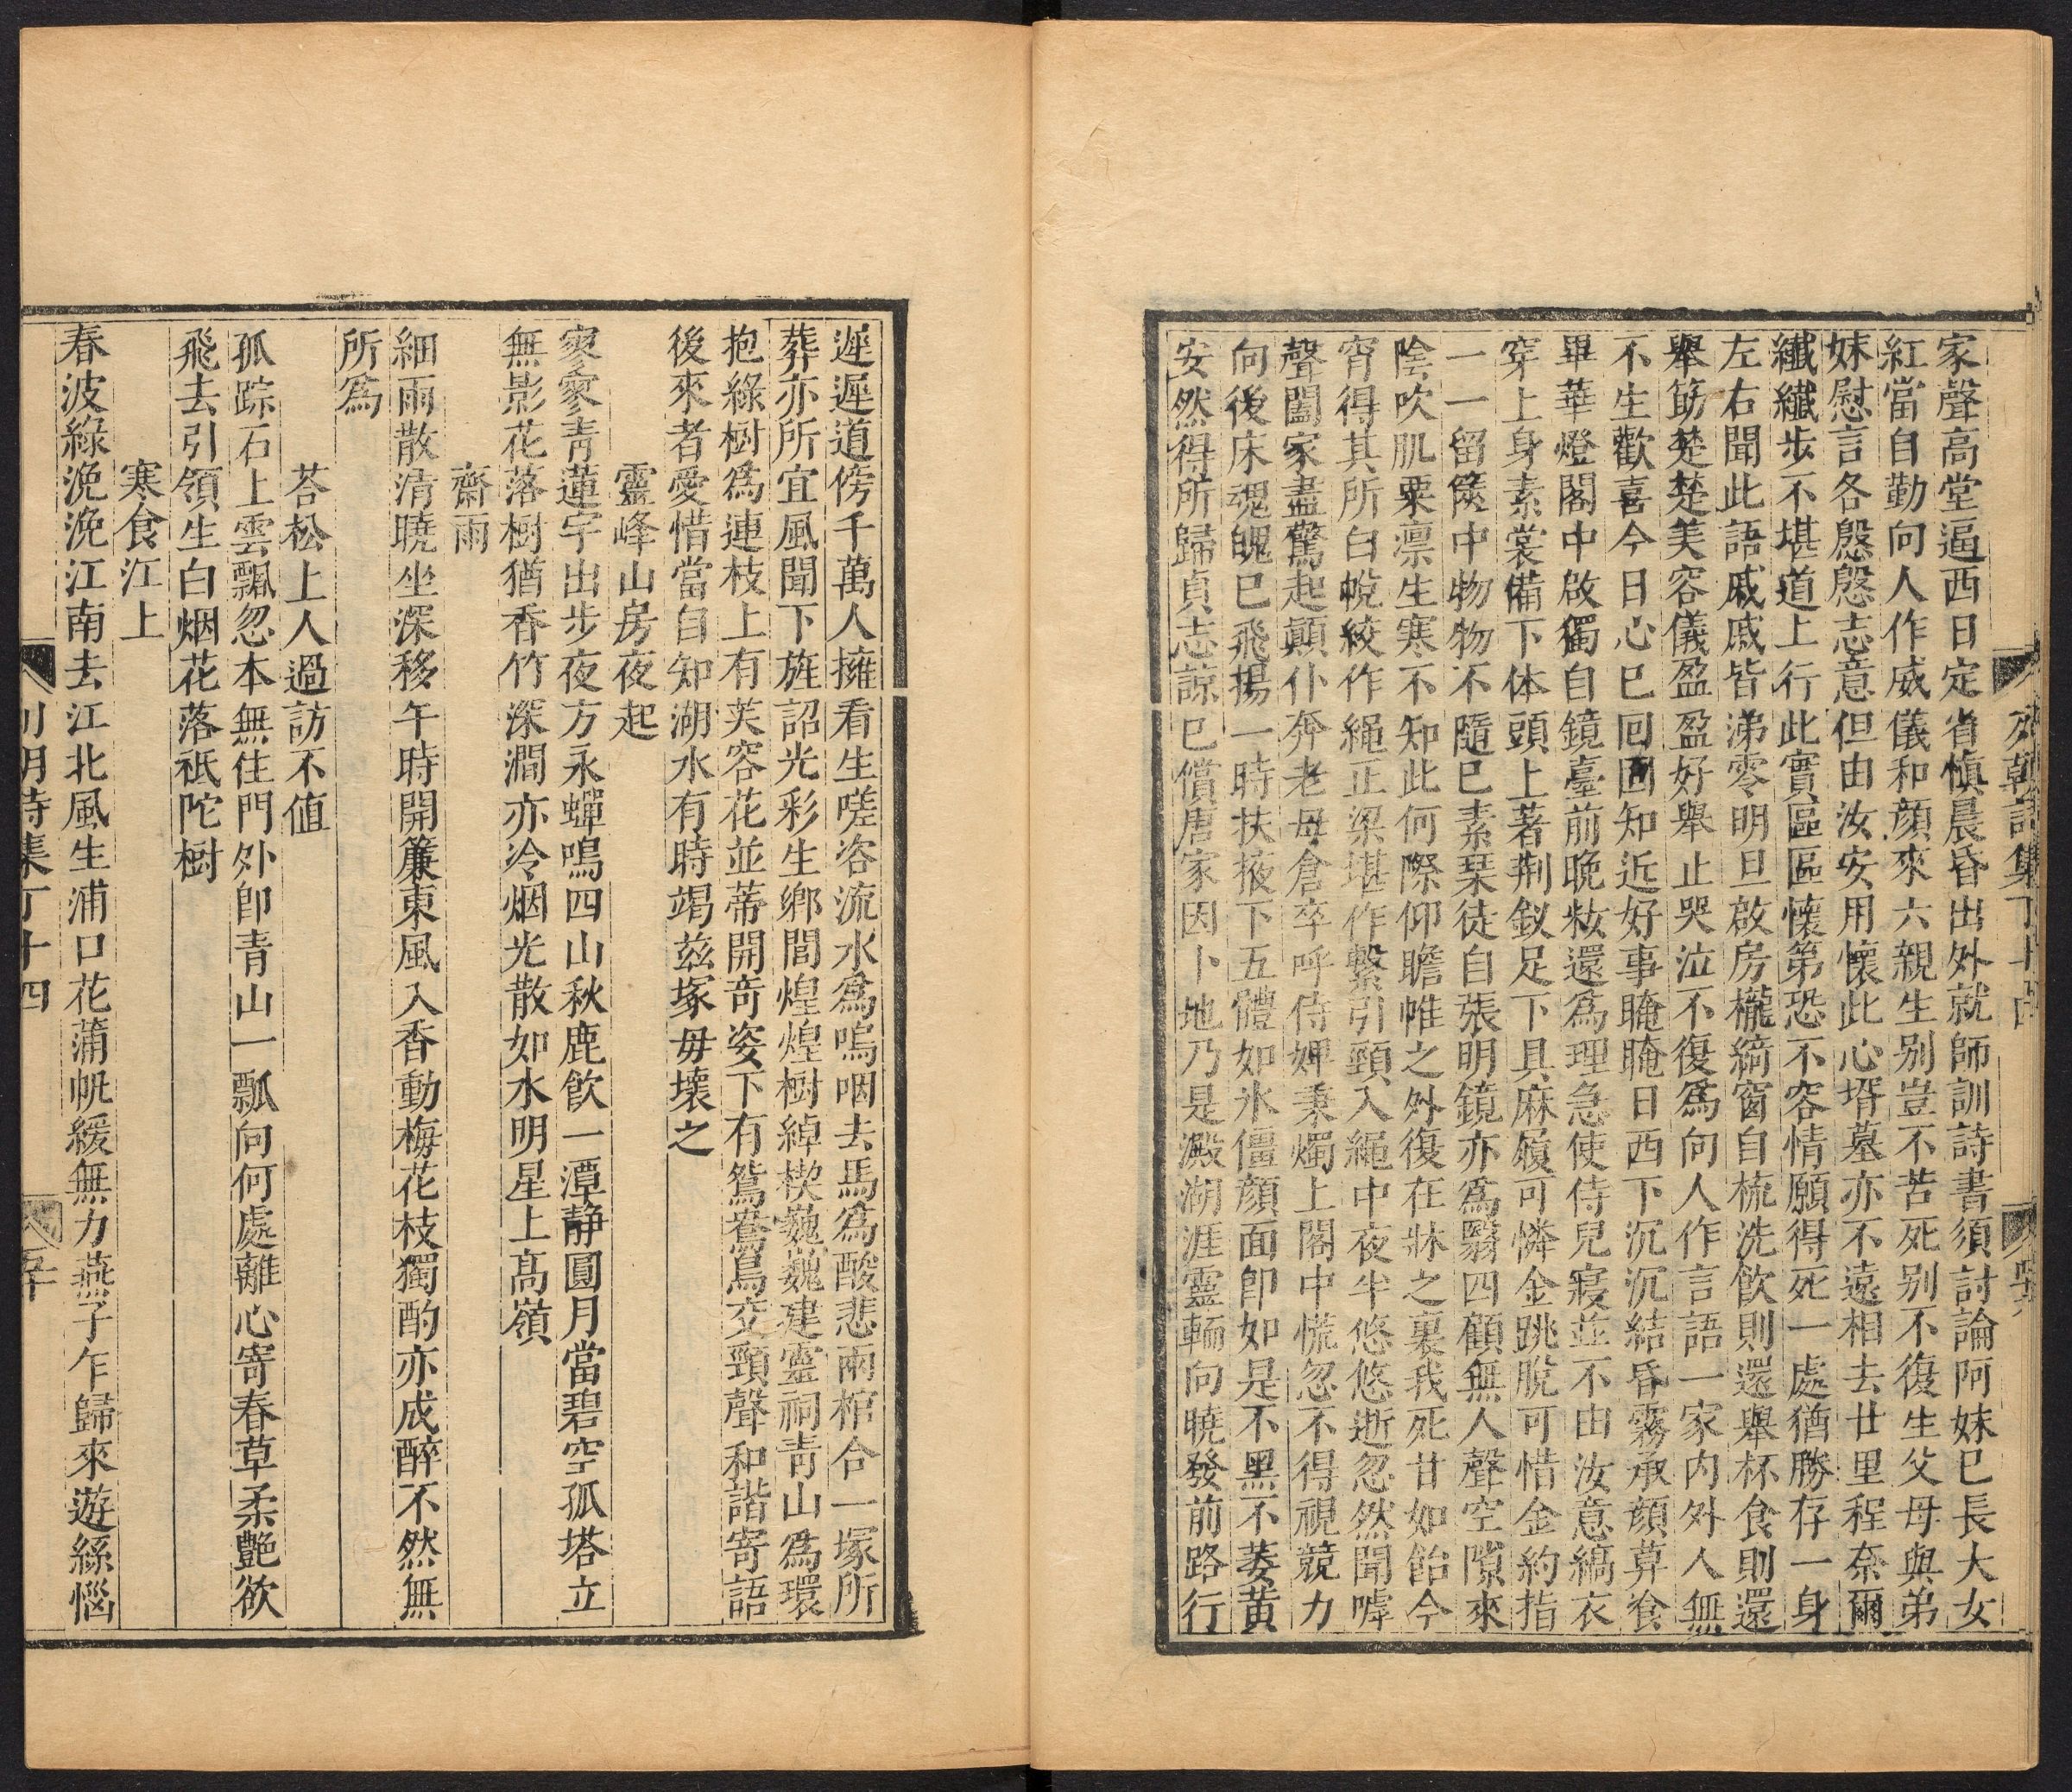 列朝詩集丁十四
家聲高堂逼西日定省慎晨昏出外就師訓詩書須討論阿妹已長大女
紅當自勤向人作威儀和顔來六親生别豈不苦死别不復生父母與弟
妹慰言各慇慇志意但由汝安用懷此心壻墓亦不遠相去廿里程奈爾
纖纖步不堪道上行此實區區懷第恐不容情願得死一處猶勝存一身
左右聞此語戚戚皆涕零明旦啟房櫳綺窗自梳洗飲則還舉杯食則還
舉筯楚楚美容儀盈盈好舉止哭泣不復爲向人作言語一家内外人無
不生歡喜今日心已回回知近好事晻晻日西下沉沉結昏霧承顔算飡
畢華燈閣中啟獨自鏡臺前晚粧還爲理急使侍兒寢並不由汝意縞衣
穿上身素裳備下体頭上著荆釵足下具麻履可憐金跳脱可惜金約指
一一留篋中物物不隨已素琹徒自張明鏡亦爲翳四顧無人聲空隙來
陰吹肌粟凛生寒不知此何際仰瞻帷之外復在牀之裏我死甘如飴今
宵得其所白帨絞作繩正梁堪作繫引頸入繩中夜半悠悠逝忽然聞嘑
聲闔家盡驚起顛仆奔老母倉卒呼侍婢秉燭上閣中慌忽不得視競力
向後床魂魄已飛揚一時扶掖下五體如氷僵顔面卽如是不黑不萎黄
安然得所歸貞志諒已償唐家因卜地乃是澱湖涯靈輀向曉發前路行
遲遲道傍千萬人擁看生嗟咨流水爲嗚咽去馬爲酸悲兩棺合一塚所
葬亦所宜風聞下旌詔光彩生鄉閭煌煌樹綽楔巍巍建靈祠青山爲環
抱綠樹爲連枝上有芙容花並蒂開奇姿下有鴛鴦鳥交頸聲和諧寄語
後來者愛惜當自知湖水有時竭兹塚毋壞之
靈峰山房夜起
寥寥青蓮宇出步夜方永蟬鳴四山秋鹿飮一潭静圓月當碧空孤塔立
無影花落樹猶香竹深澗亦冷烟光散如水明星上高嶺
齋雨
細雨散清曉坐深移午時開簾東風入香動梅花枝獨酌亦成醉不然無
所爲
荅松上人過訪不值
孤踪石上雲飄忽本無住門外卽青山一瓢向何處離心寄春草柔艶欲
飛去引領生白烟花落祇陀樹
寒食江上
春波綠浼浼江南去江北風生浦口花蒲帆緩無力燕子乍歸來遊絲惱
列朝詩集丁十四